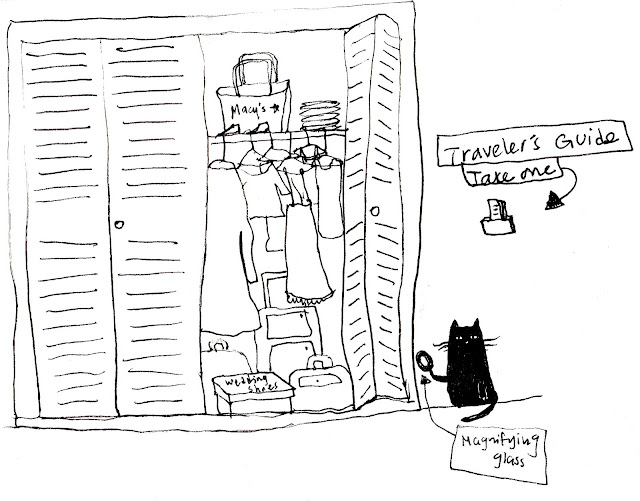 Macy's
Traveler's Guide
Take one
Wedding
Shoes
Magnifying
glass